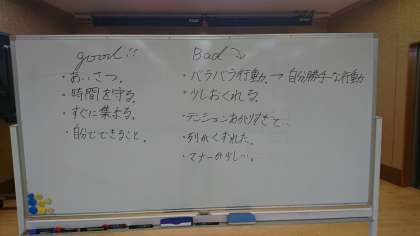 good!!
・あいさつ。
・時間を守る。
・すぐに集まる。
・自分でできること。
Bad
・バラバラ行動。→自分勝手な行動
・少しおくれる。
・テンションあがりすぎて…
・列がくずれた。
・マナーが少し…。